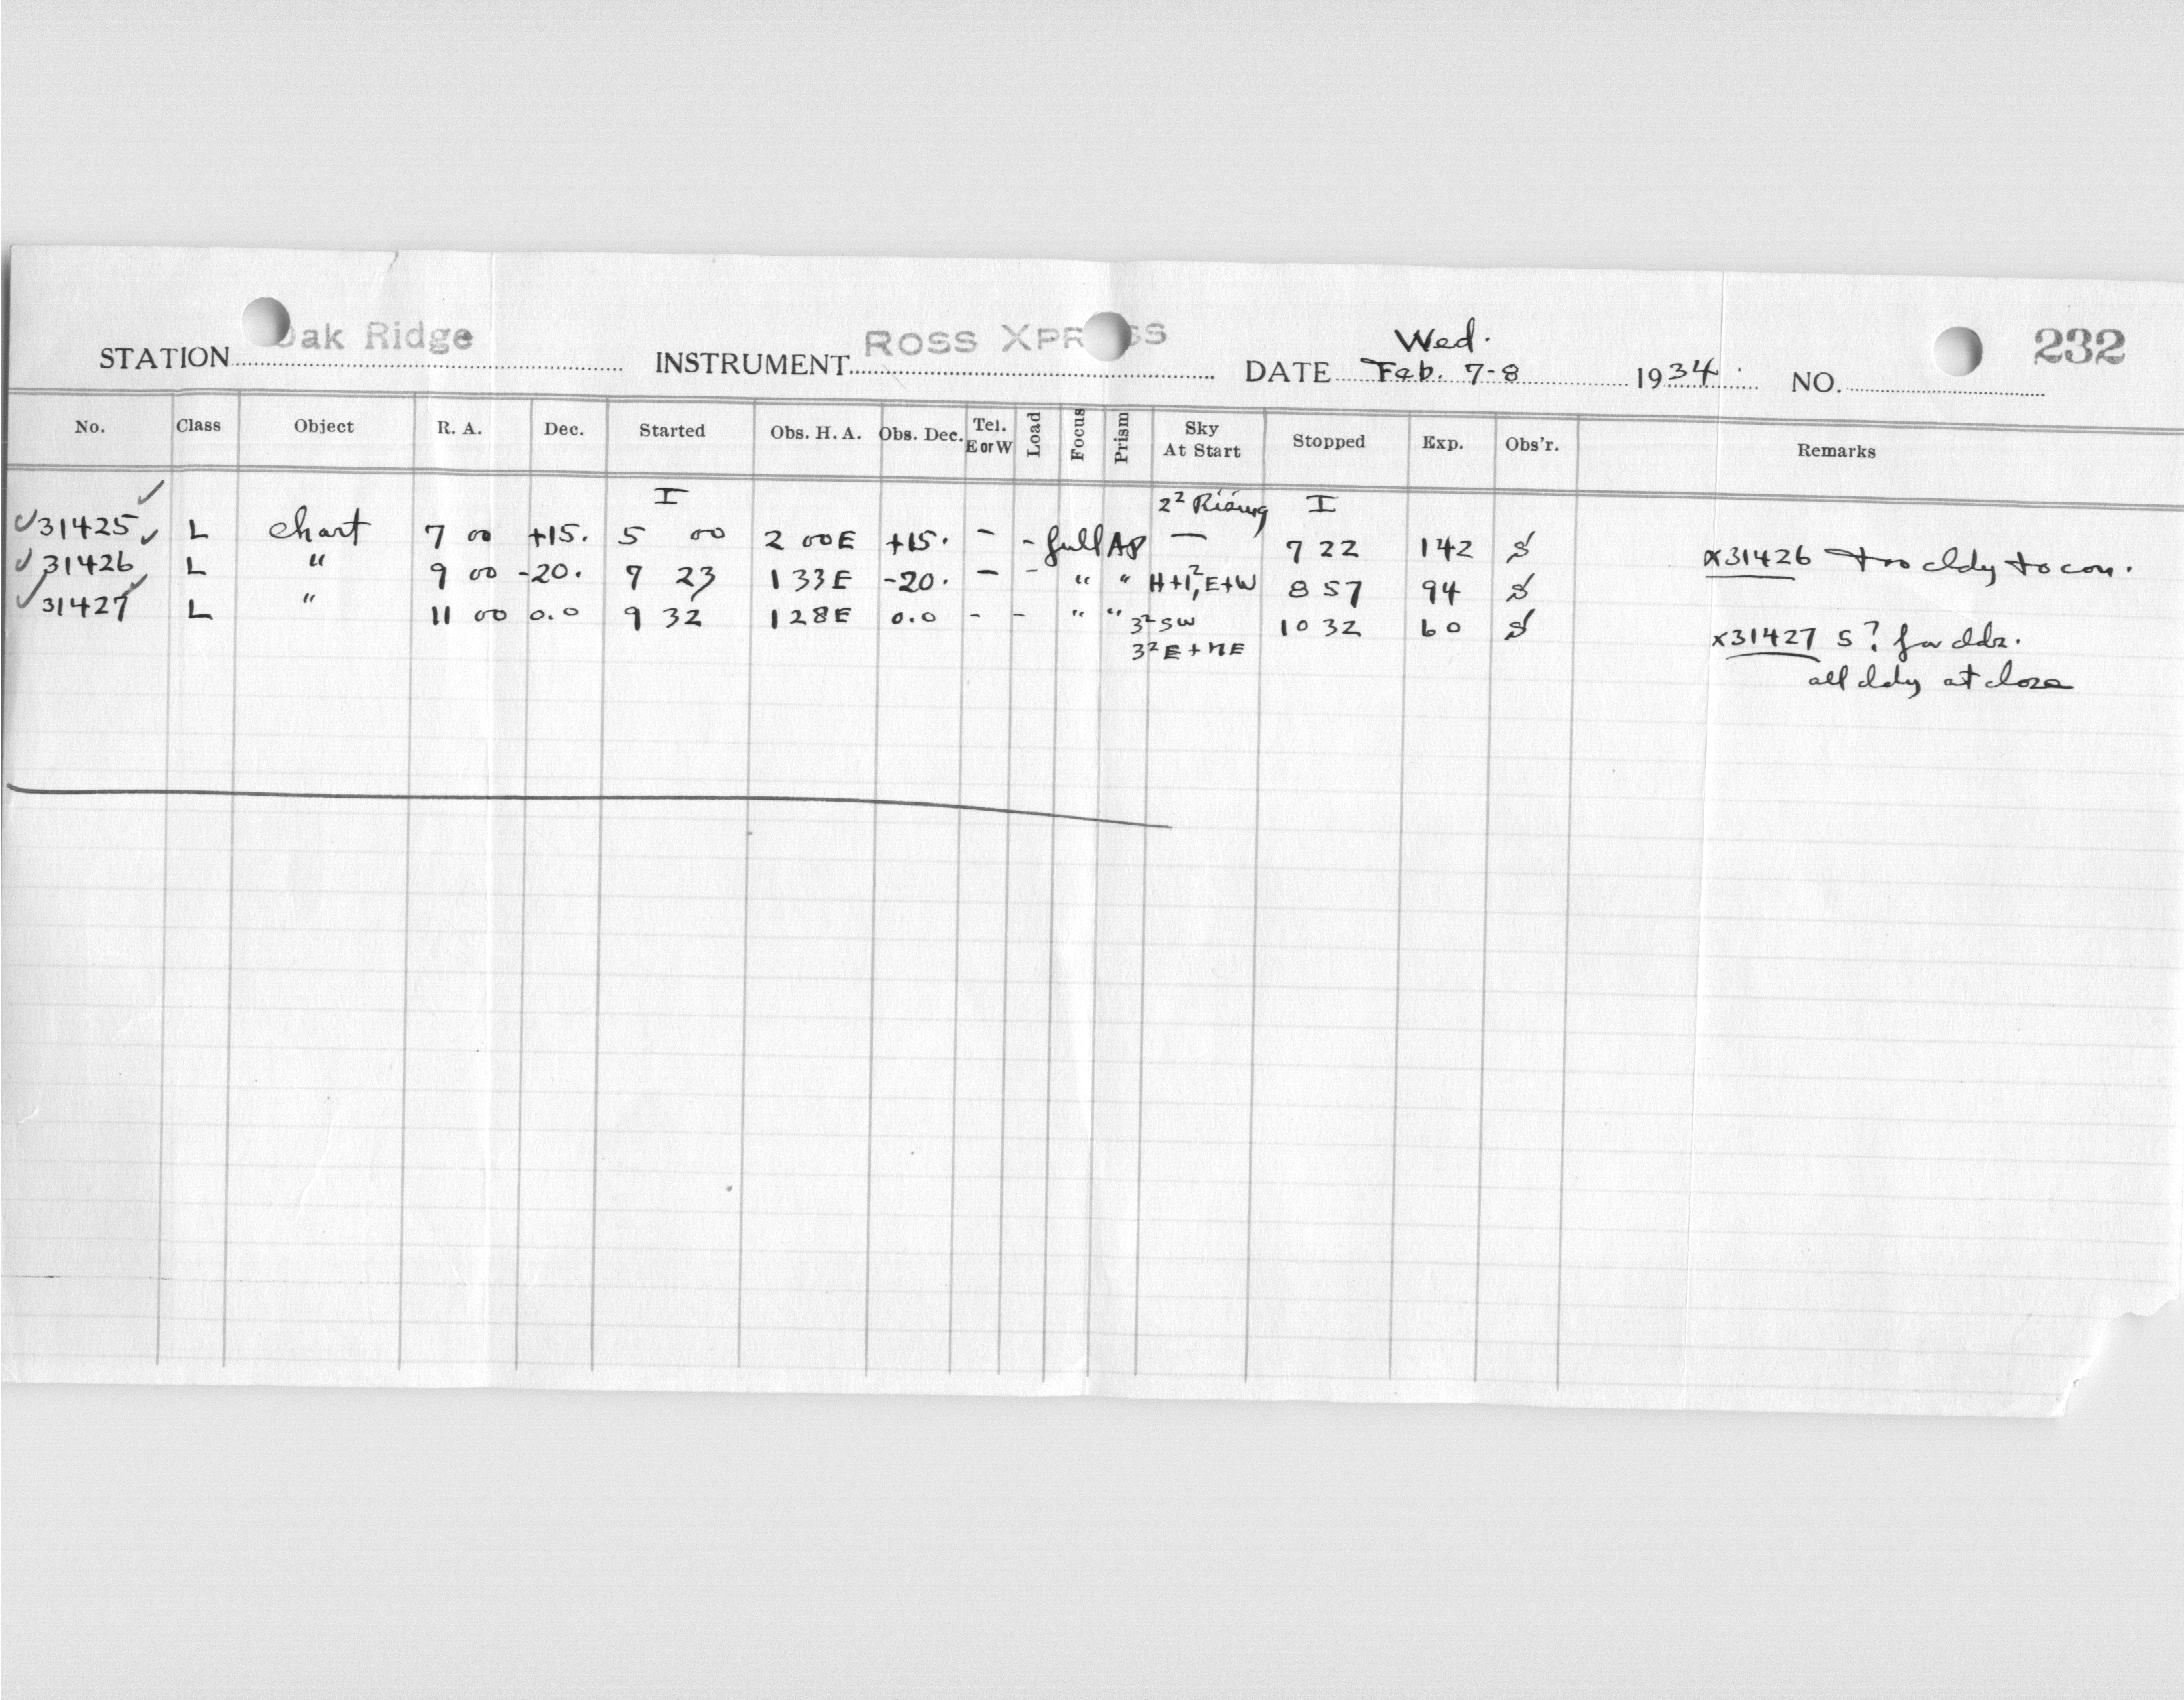 Oak Ridge ROSS XPRESS Wed. 232
STATION INSTRUMENT DATE Feb. 7-8 1934. NO.
No. Class Object R. A. Dec. Started Obs. H. A. Obs. Dec. Tel. E or W Load Focus Prism Sky At Start Stopped Exp. Obs'r. Remarks
I 2² Rising I
31425 L chart 7 00 +15. 5 00 2 00E +15. - - full AP — 7 22 142 S
31426 L " 9 00 -20. 7 23 1 33E -20. - - " " H+1², E+W 8 57 94 S x31426 too cldy to con.
31427 L " 11 00 0.0 9 32 1 28E 0.0 - - " " 3² SW 10 32 60 S x31427 S? for clds.
3² E + NE all cldy at close